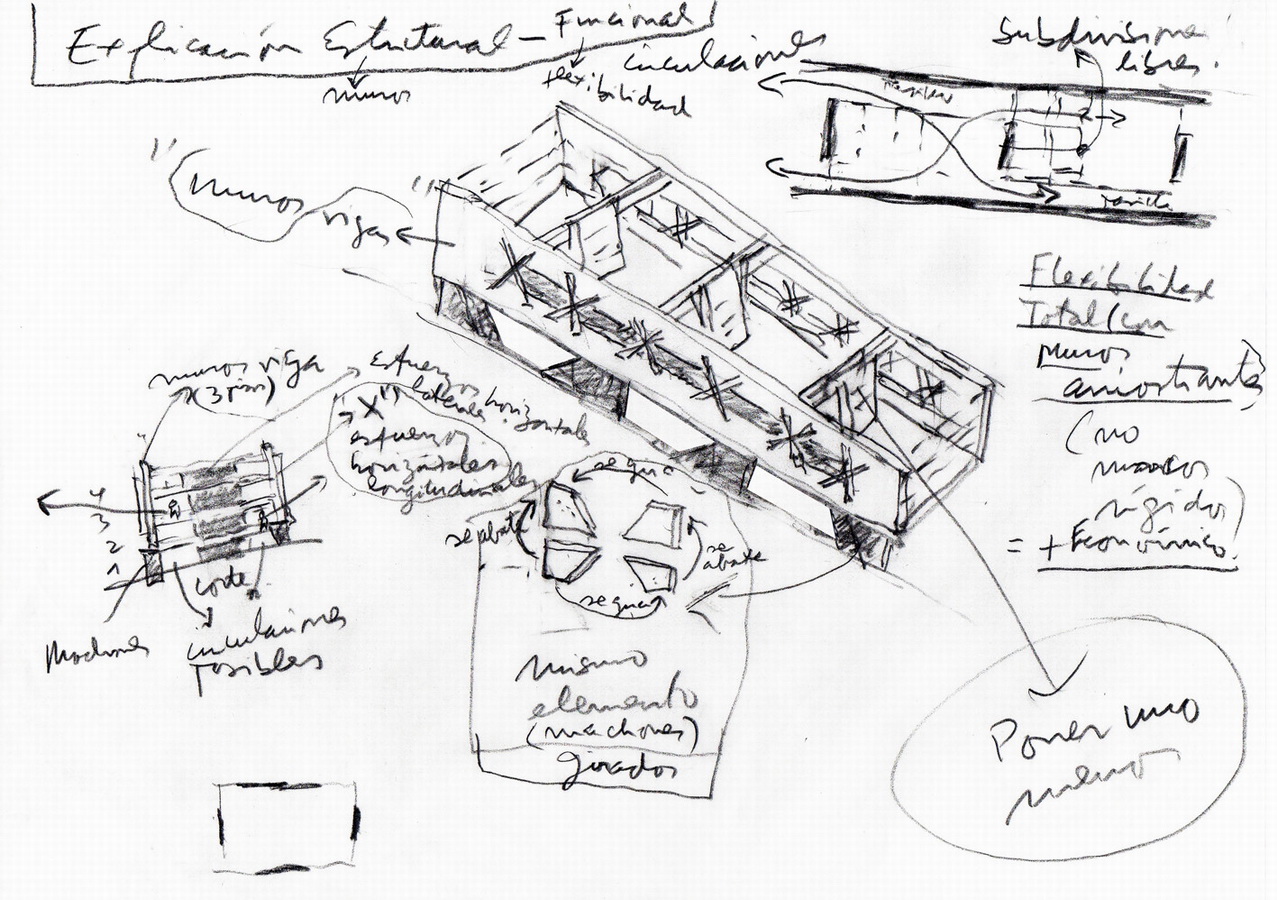 Explicación Estructural - Funcional
muros
flexibilidad
circulaciones
Subdivisiones
libres.
pasillo
pasillo
"muros
vigas"
Flexibilidad
Total (con
muros
arriostrantes)
(no
marcos
rígidos)
= + Económico.
muros viga
(3 pisos)
Esfuerzos horizontales
laterales
"X"
esfuerzos
horizontales
longitudinales
4
3
2
1
corte
Machones
circulaciones
posibles
se gira
se abate
se abate
se gira
mismo
elemento
(machones)
girados
Poner uno
menos